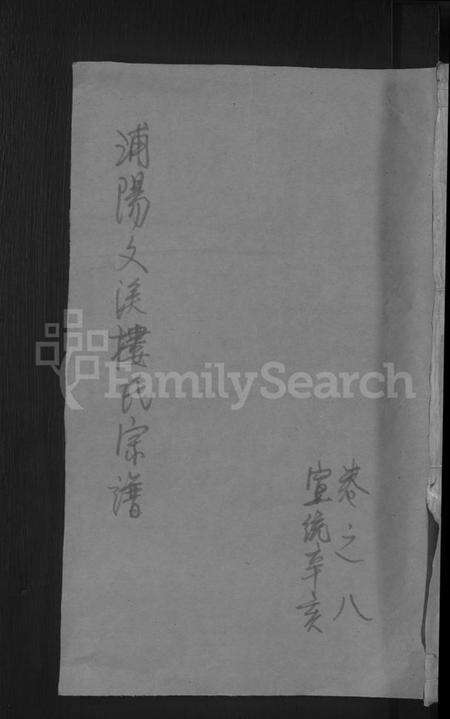 浦陽文溪樓氏宗譜
卷之八
宣統辛亥
FamilySearch